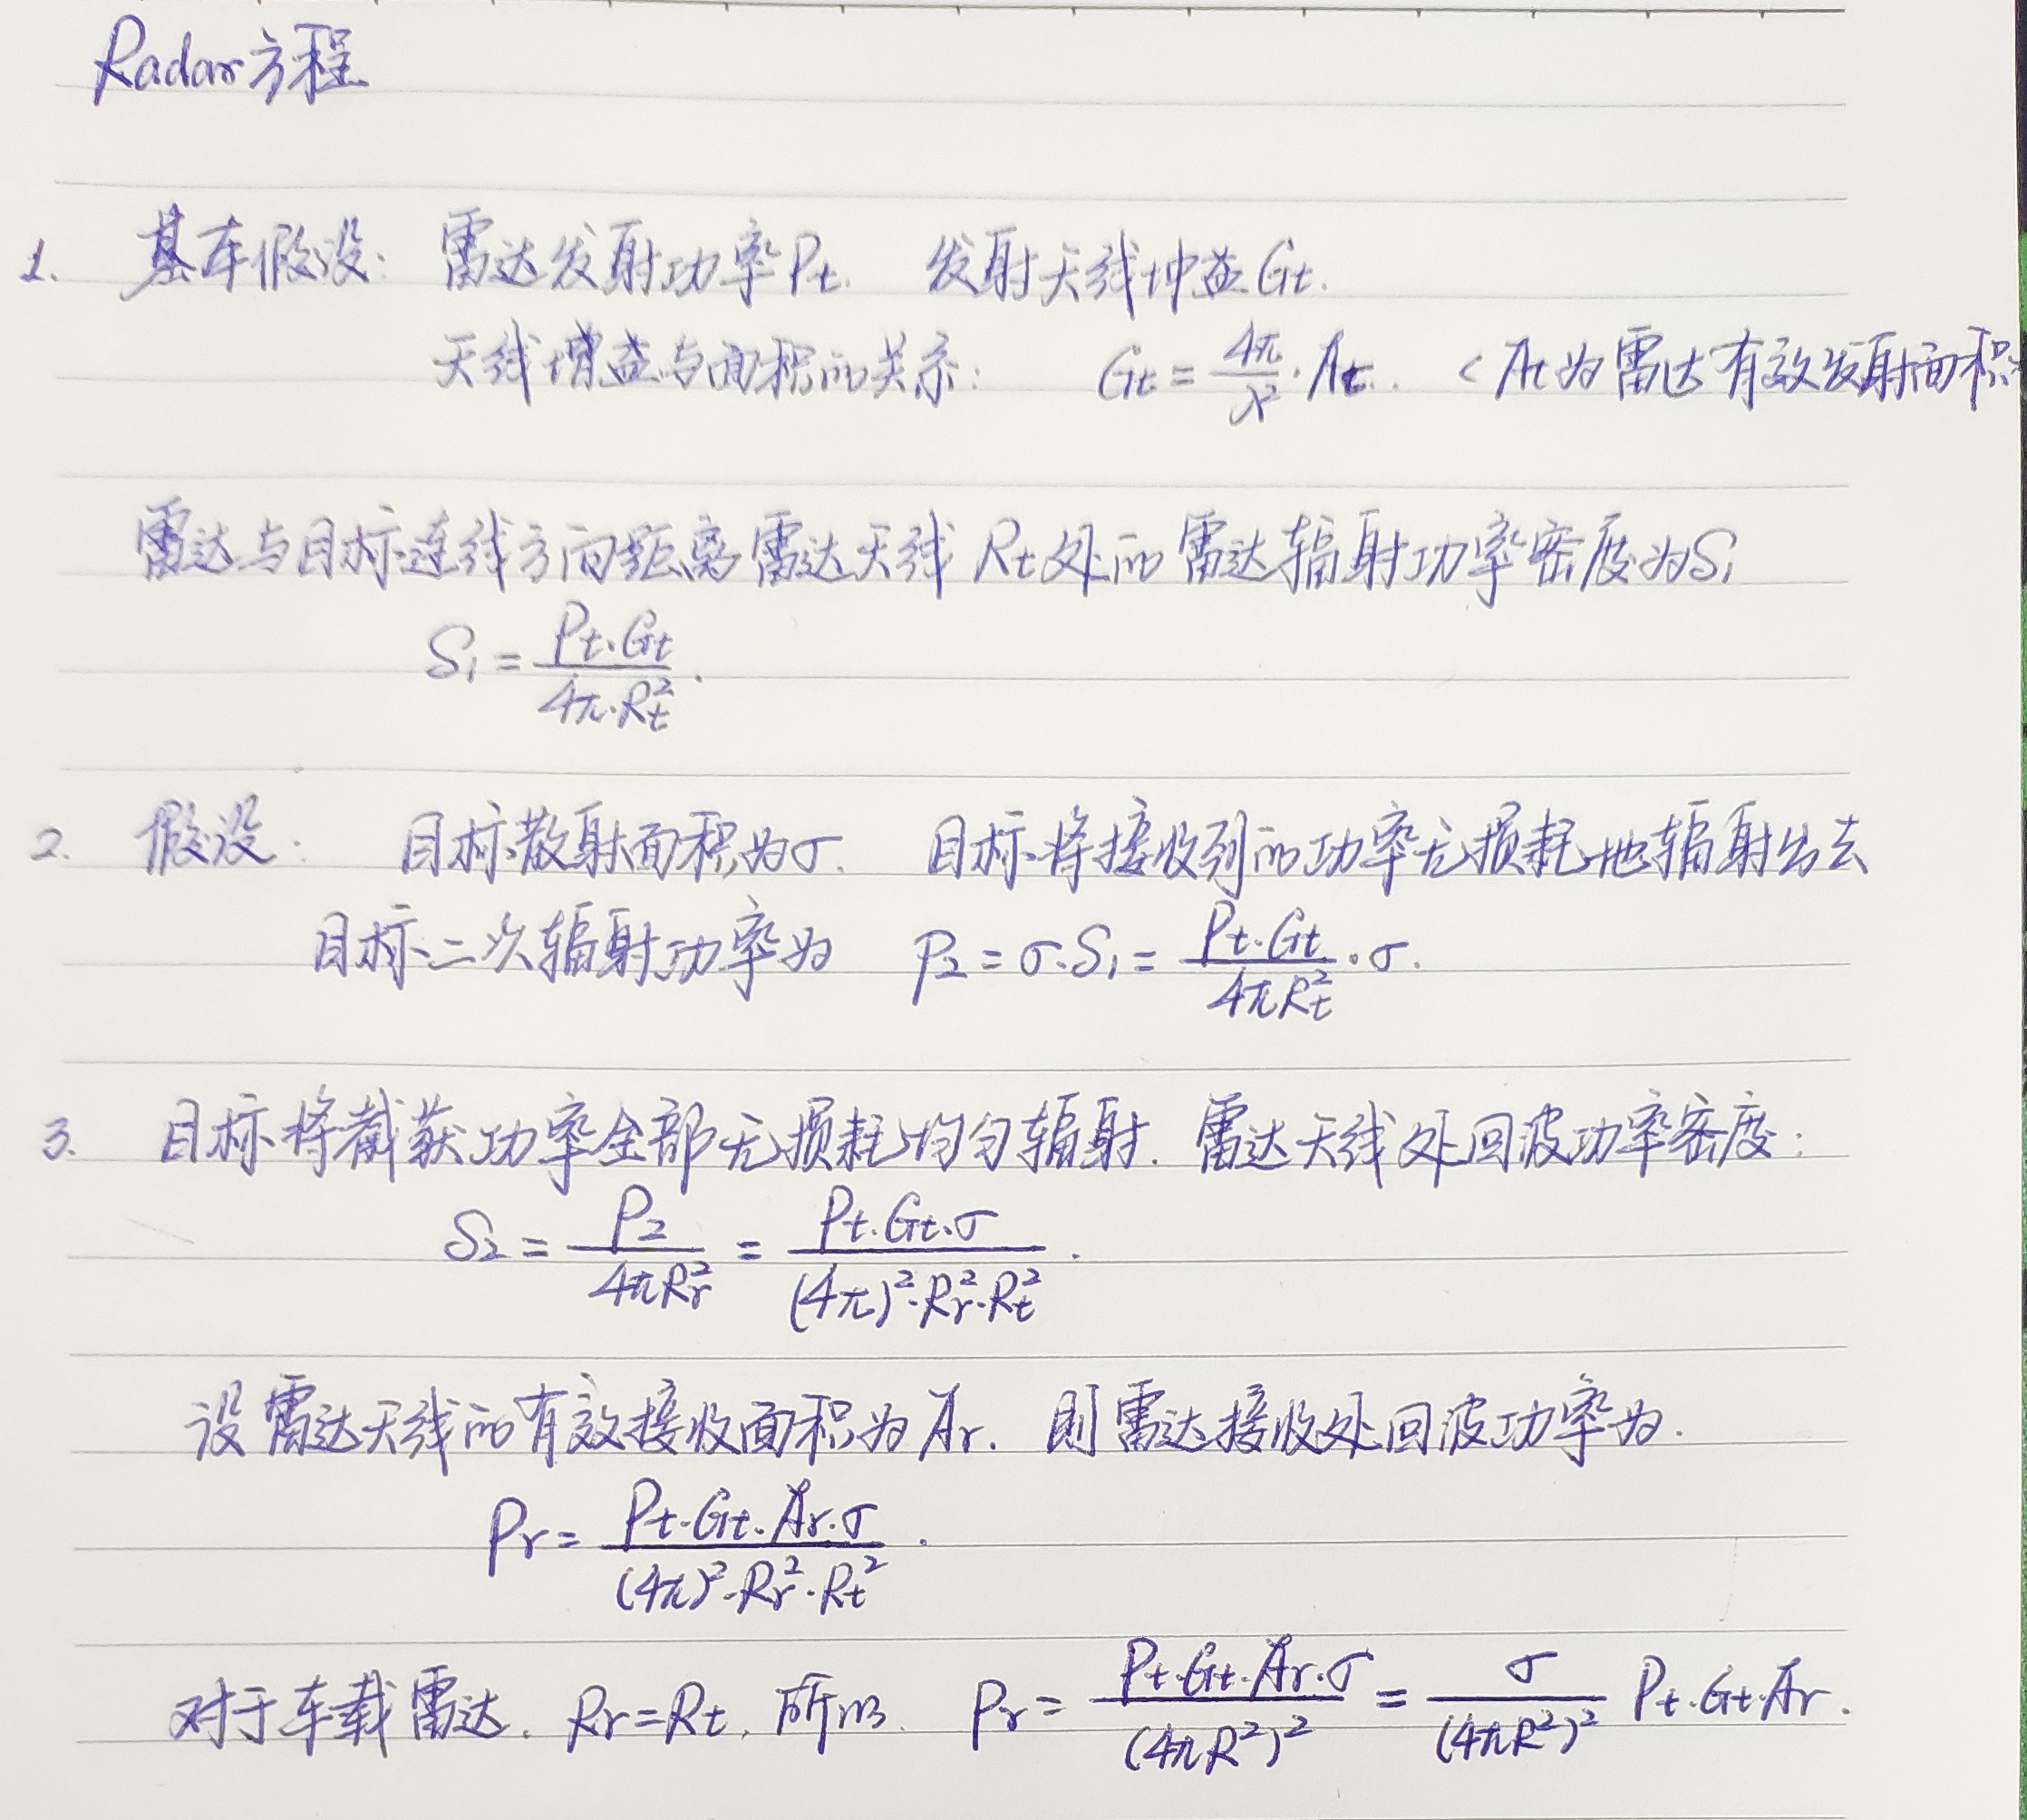 Radar方程
1. 基本假设: 雷达发射功率Pt. 发射天线增益Gt.
天线增益与面积的关系: Gt = 4π/λ² · At. (At为雷达有效发射面积)
雷达与目标连线方向距离雷达天线Rt处的雷达辐射功率密度为S₁
S₁ = Pt·Gt / 4π·Rt².
2. 假设: 目标散射面积为σ. 目标将接收到的功率无损耗地辐射出去
目标二次辐射功率为 P₂ = σ·S₁ = Pt·Gt / 4πRt² · σ.
3. 目标将截获功率全部无损耗均匀辐射. 雷达天线处回波功率密度:
S₂ = P₂ / 4πRr² = Pt·Gt·σ / (4π)²·Rr²·Rt².
设雷达天线的有效接收面积为Ar. 则雷达接收处回波功率为.
Pr = Pt·Gt·Ar·σ / (4π)²·Rr²·Rt².
对于车载雷达. Rr=Rt, 所以. Pr = Pt·Gt·Ar·σ / (4πR²)² = σ / (4πR²)² Pt·Gt·Ar.